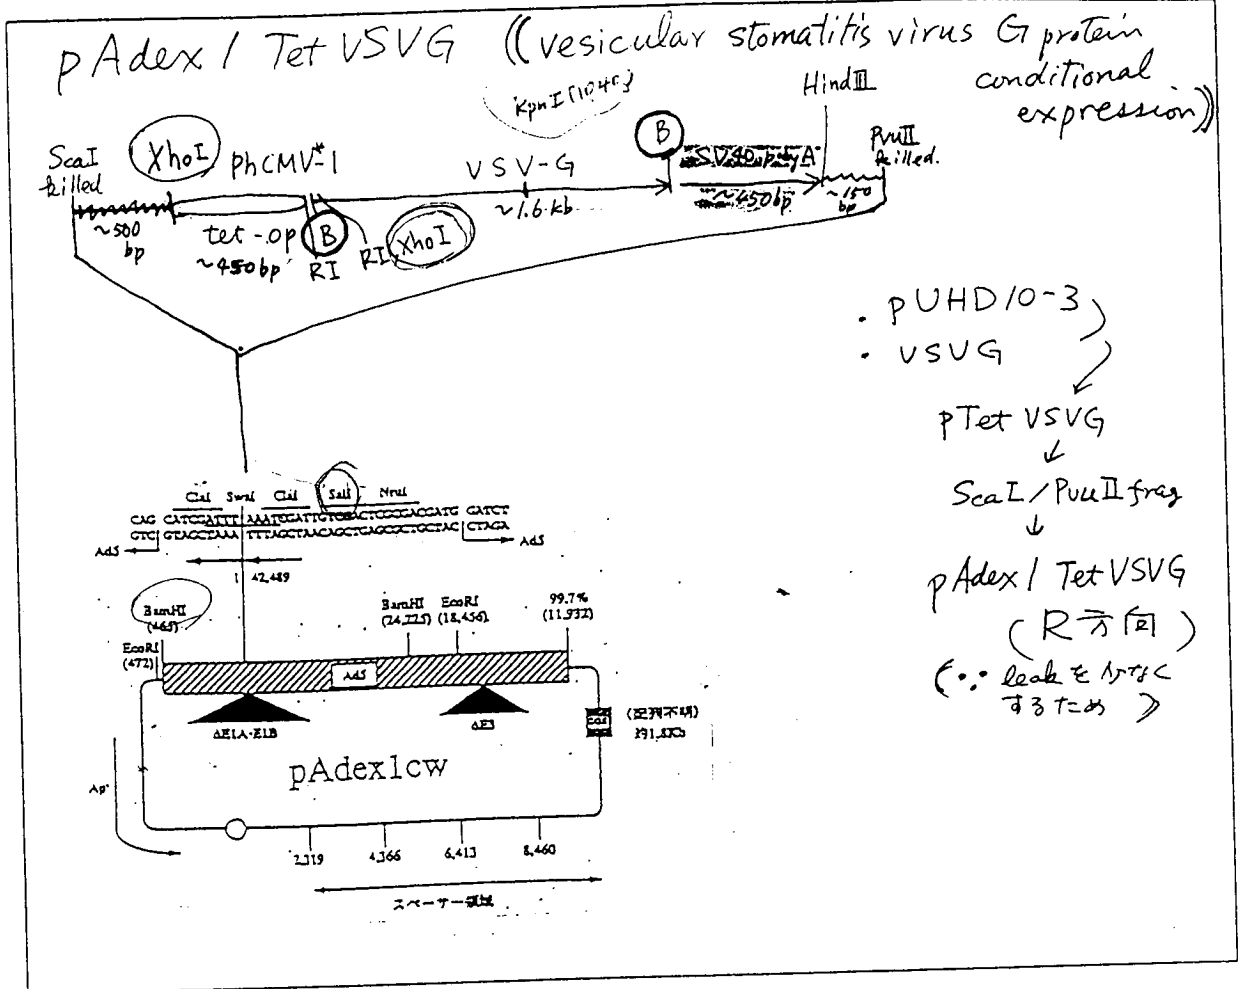 pAdex1 Tet VSVG ((vesicular stomatitis virus G protein
conditional
expression))
KpnI (1040)
HindIII
ScaI
killed
XhoI
PhCMV*-1
VSV-G
B
SV40 polyA
PvuII
killed.
~500
bp
tet-op
~450bp
B
RI
RI
XhoI
~1.6kb
~450bp
~150
bp
・pUHD10-3
・VSVG
pTet VSVG
ScaI/PvuII frag
pAdex1 TetVSVG
(R方向)
(∵ leakを少なく
するため)
ClaI SwaI ClaI SalI NruI
CAG CATCGATTT AAATCGATTGTCGACTCGCGACGATG GATCT
GTC GTAGCTAAA TTTAGCTAACAGCTGAGCGCTGCTAC CTAGA
Ad5
Ad5
1 42,489
BamHI
(465)
EcoRI
(472)
BamHI
(24,225)
EcoRI
(18,456)
99.7%
(11,932)
Ad5
ΔE1A·E1B
ΔE3
cos
(配列不明)
約1.8Kb
pAdex1cw
Ap^r
2,319
4,366
6,413
8,460
スペーサー領域